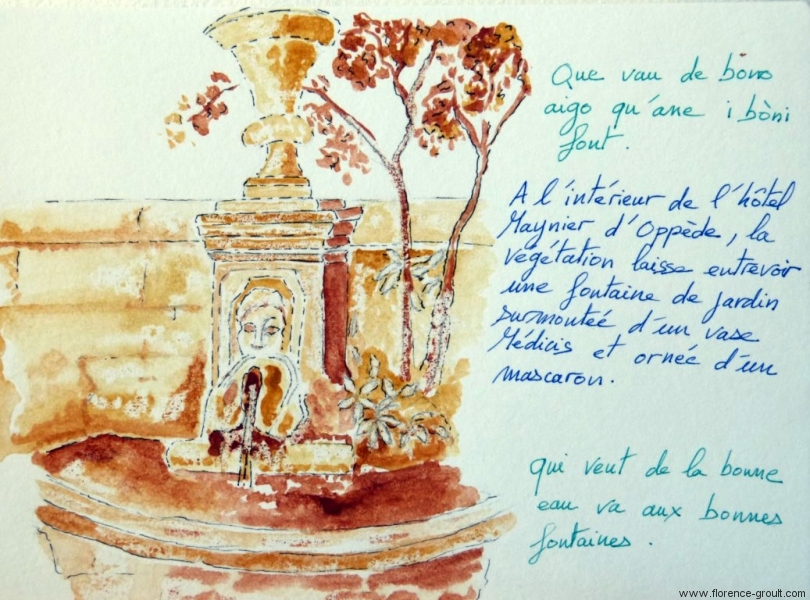 Que vau de bono
aigo qu'ane i bòni
font.
A l'intérieur de l'hôtel
Maynier d'Oppède, la
végétation laisse entrevoir
une fontaine de jardin
surmonteé d'un vase
Médicis et ornée d'un
mascaron.
qui veut de la bonne
eau va aux bonnes
fontaines.
www.florence-groult.com